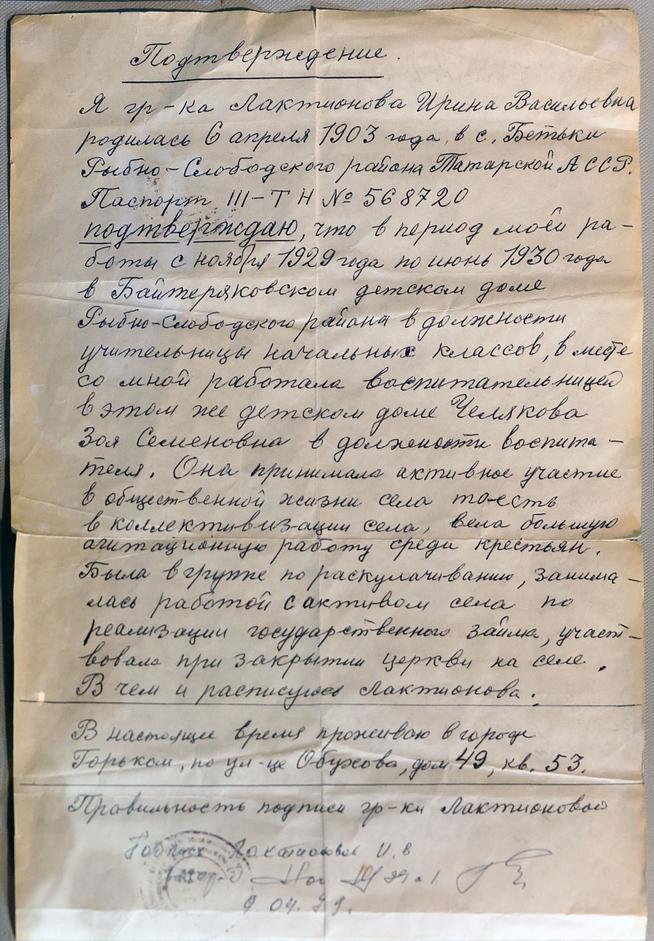 Подтверждение.
Я гр-ка Лактионова Ирина Васильевна
родилась 6 апреля 1903 года в с. Бетьки
Рыбно-Слободского района Татарской АССР.
Паспорт III-ТН № 568720
подтверждаю, что в период моей ра-
боты с ноября 1929 года по июнь 1930 года
в Байтеряковском детском доме
Рыбно-Слободского района в должности
учительницы начальных классов, в месте
со мной работала воспитательницей
в этом же детском доме Челякова
Зоя Семеновна в должности воспита-
теля. Она принимала активное участие
в общественной жизни села то-есть
в коллективизации села, вела большую
агитационную работу среди крестьян.
Была в группе по раскулачиванию, занима-
лась работой с активом села по
реализации государственного займа, участ-
вовала при закрытии церкви на селе.
В чем и расписуюсь Лактионова.
В настоящие время проживаю в городе
Горьком, по ул-це Обухова, дом 49, кв. 53.
Правильность подписи гр-ки Лактионовой
Подпись Лактионовой И.В